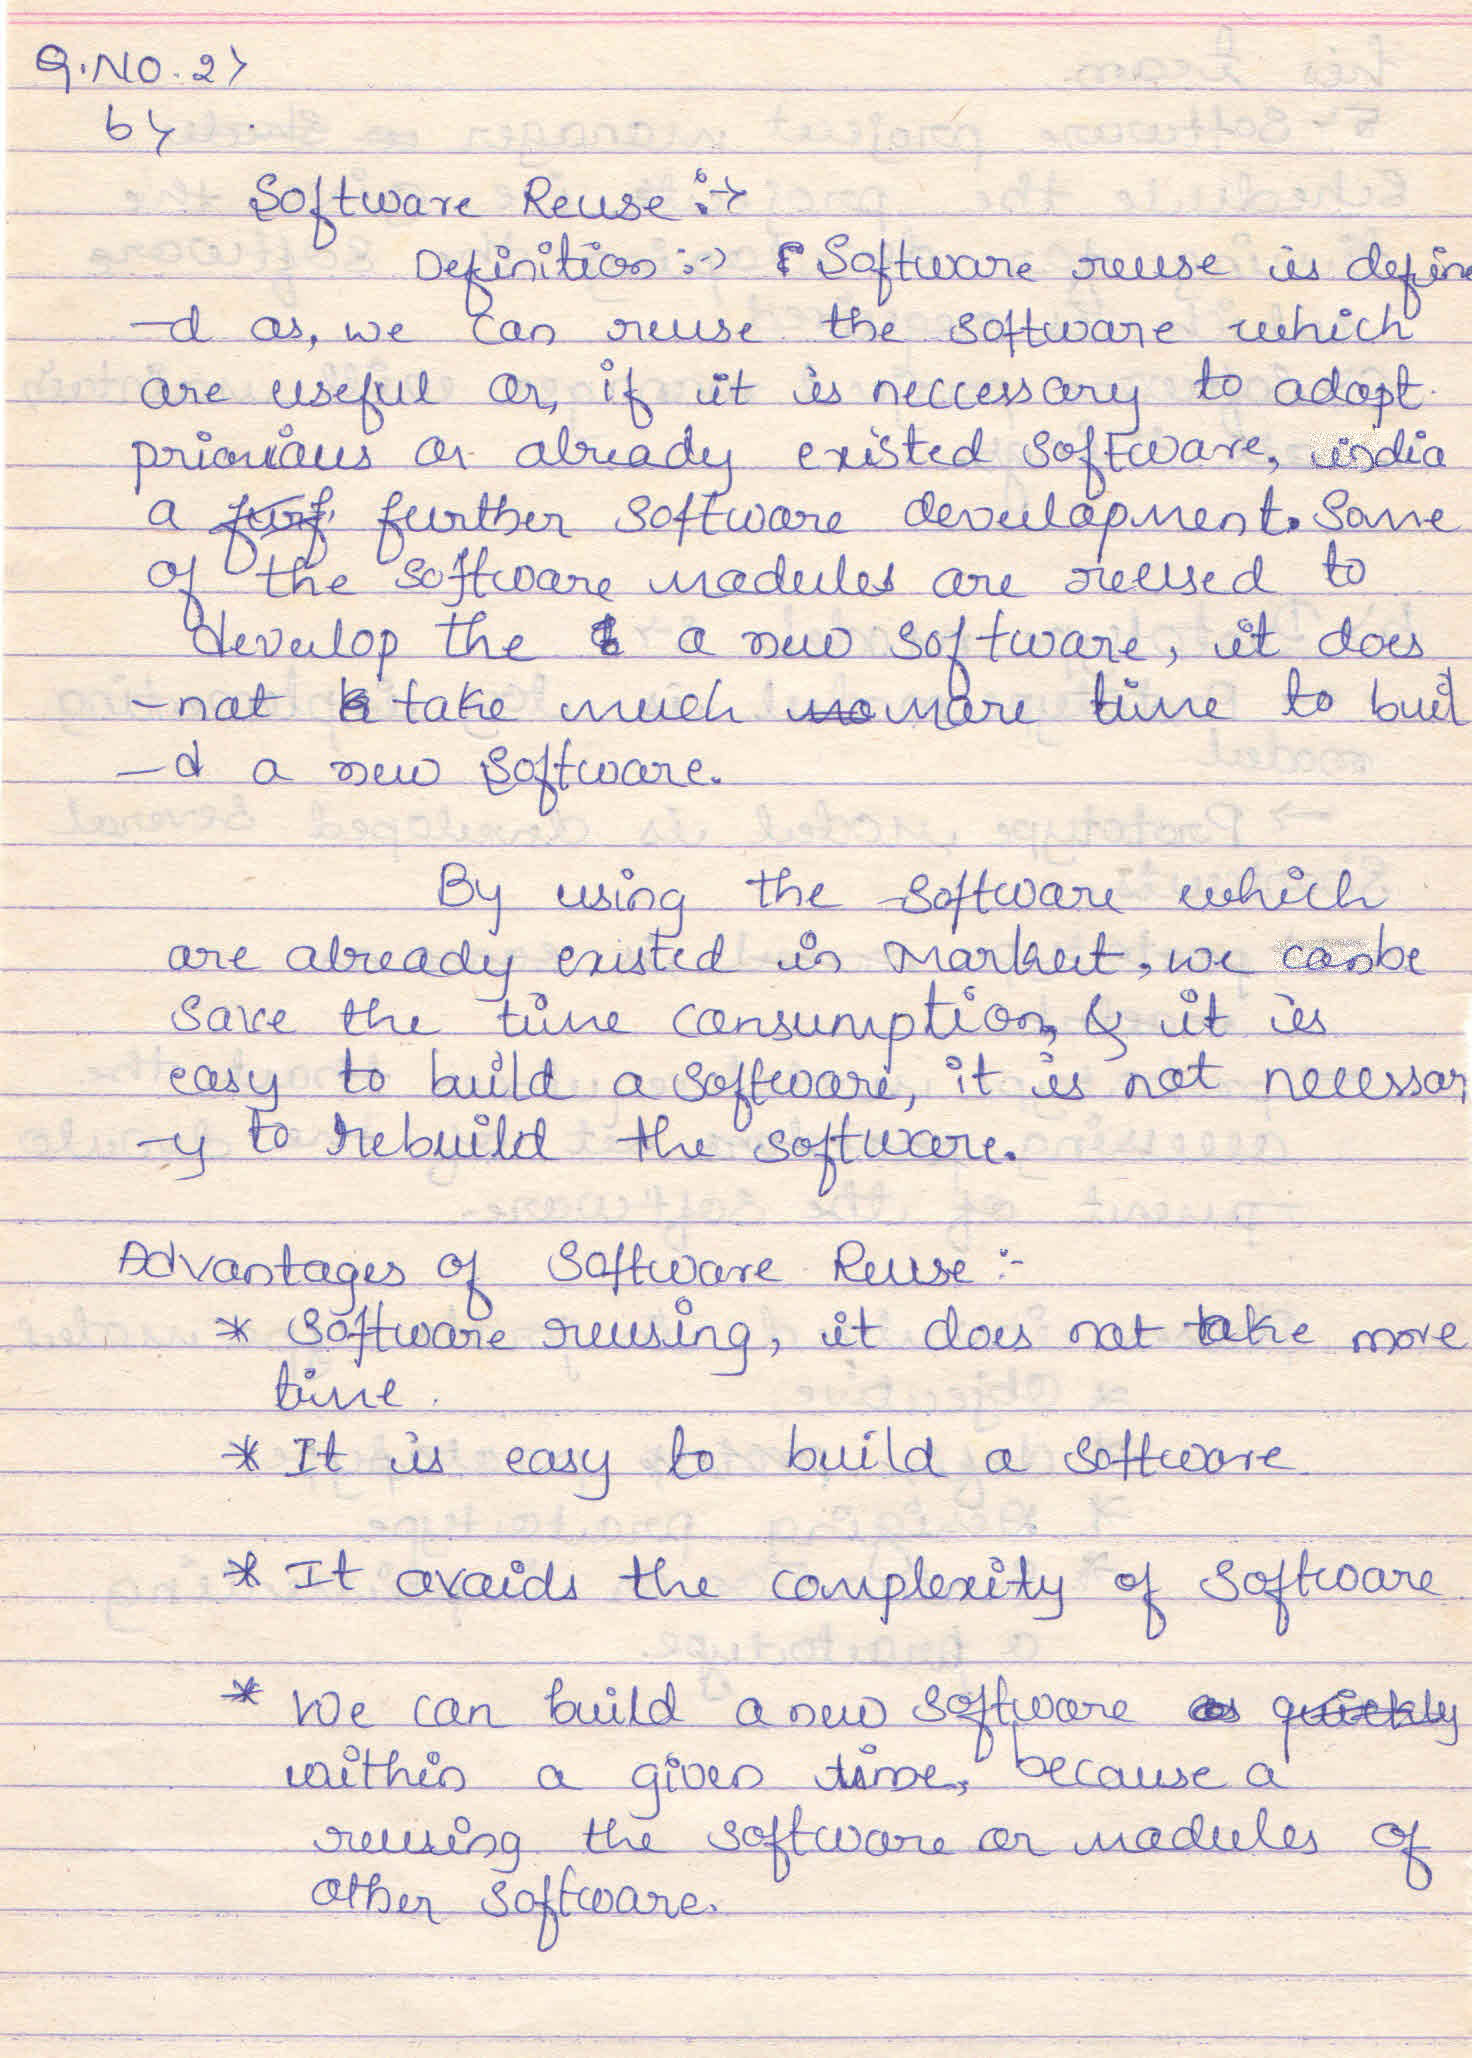 Q.NO. 2>
b>
Software Reuse :->
Definition :-> Software reuse is define
-d as, we can reuse the software which
are useful or, if it is neccessary to adopt
or already existed software,
a further software development. Some
of the software modules are reused to
develop the a new software, it does
-not take much more time to buil
-d a new software.
By using the software which
are already existed in market, we can be
save the time consumption, & it is
easy to build a software, it is not necessar
-y to rebuild the software.
Advantages of Software Reuse :-
* Software reusing, it does not take more
time.
* It is easy to build a software
* It avoids the complexity of software
* We can build a new software quickly
within a given time, because a
reusing the software or modules of
other software.